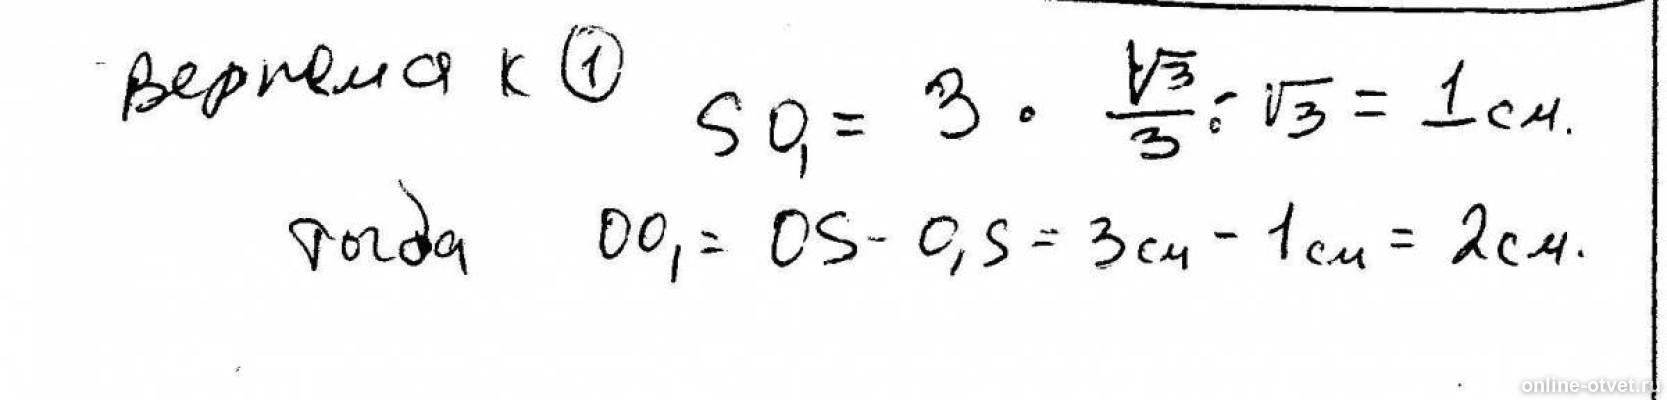 Вернемся к ①
SO₁ = 3 · √3/3 : √3 = 1 см.
тогда OO₁ = OS - O₁S = 3 см - 1 см = 2 см.
online-otvet.ru